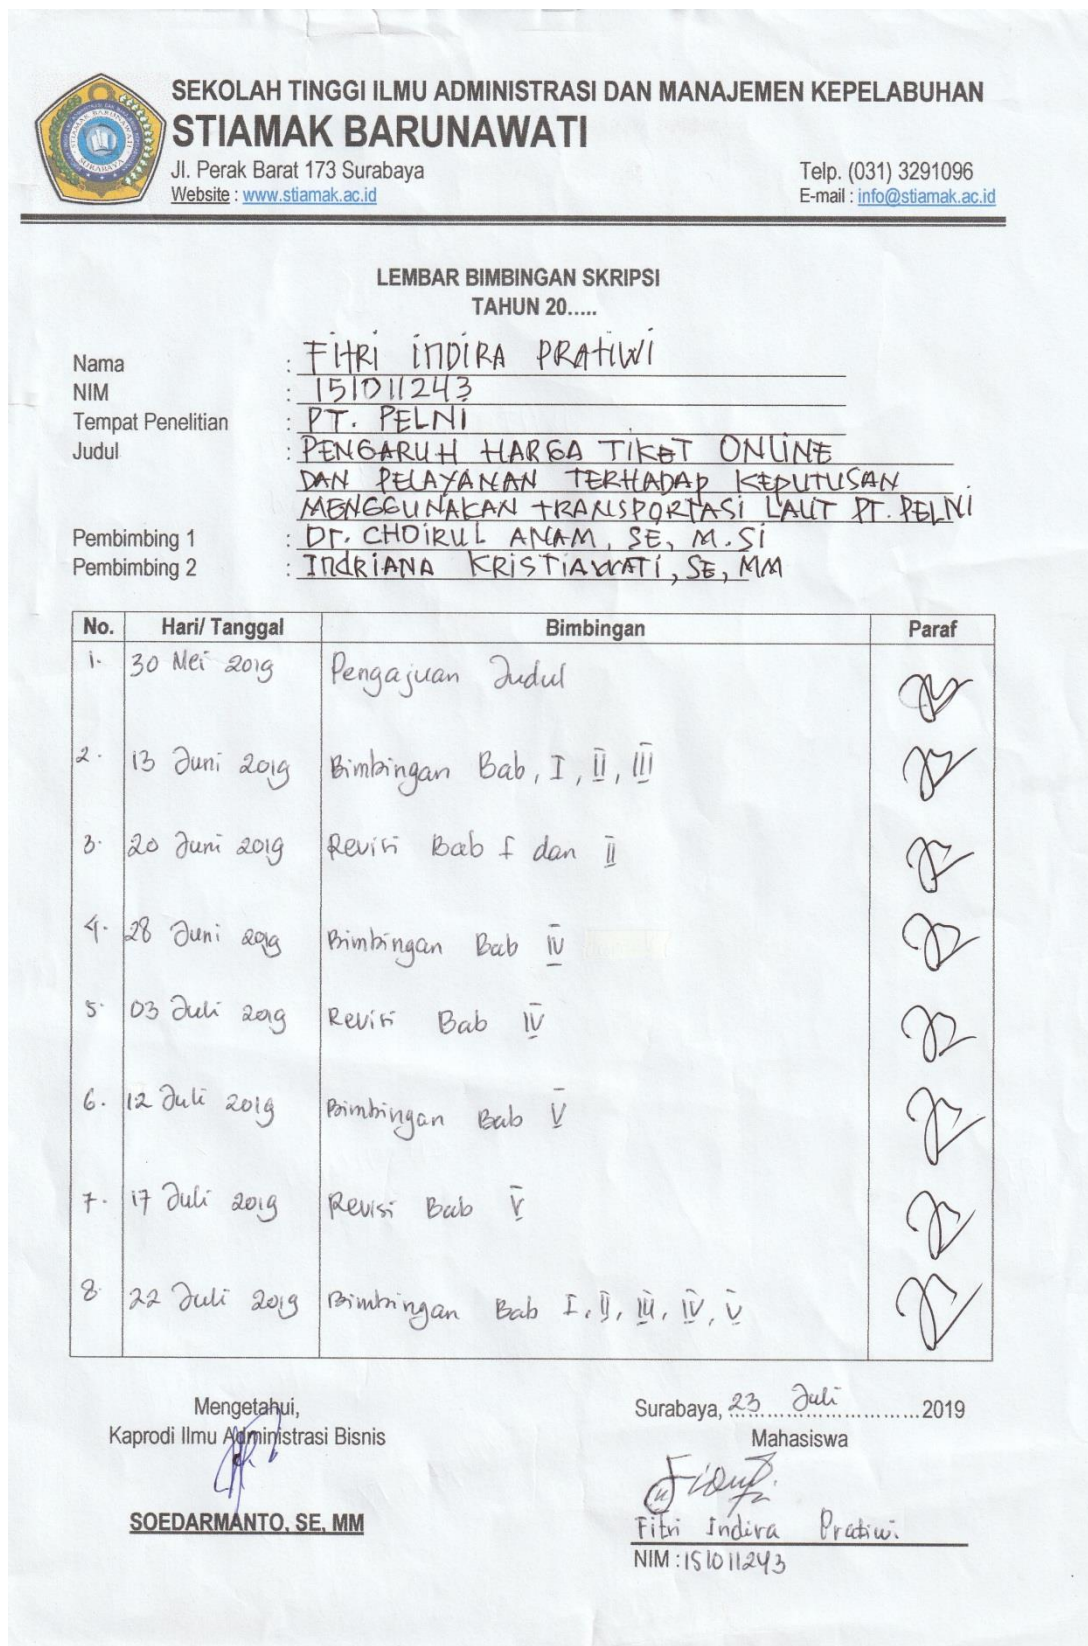 SEKOLAH TINGGI ILMU ADMINISTRASI DAN MANAJEMEN KEPELABUHAN
STIAMAK BARUNAWATI
Jl. Perak Barat 173 Surabaya Telp. (031) 3291096
Website : www.stiamak.ac.id E-mail : info@stiamak.ac.id
STIAMAK BARUNAWATI
SURABAYA
LEMBAR BIMBINGAN SKRIPSI
TAHUN 20.....
Nama : FITRI INDIRA PRATIWI
NIM : 151011243
Tempat Penelitian : PT. PELNI
Judul : PENGARUH HARGA TIKET ONLINE
DAN PELAYANAN TERHADAP KEPUTUSAN
MENGGUNAKAN TRANSPORTASI LAUT PT. PELNI
Pembimbing 1 : Dr. CHOIRUL ANAM, SE, M.Si
Pembimbing 2 : INDRIANA KRISTIAWATI, SE, MM
No. Hari/ Tanggal Bimbingan Paraf
1. 30 Mei 2019 Pengajuan Judul
2. 13 Juni 2019 Bimbingan Bab, I, II, III
3. 20 Juni 2019 Revisi Bab I dan II
4. 28 Juni 2019 Bimbingan Bab IV
5. 03 Juli 2019 Revisi Bab IV
6. 12 Juli 2019 Bimbingan Bab V
7. 17 Juli 2019 Revisi Bab V
8. 22 Juli 2019 Bimbingan Bab I, II, III, IV, V
Mengetahui, Surabaya, 23 Juli 2019
Kaprodi Ilmu Administrasi Bisnis Mahasiswa
SOEDARMANTO, SE, MM Fitri Indira Pratiwi
NIM : 151011243